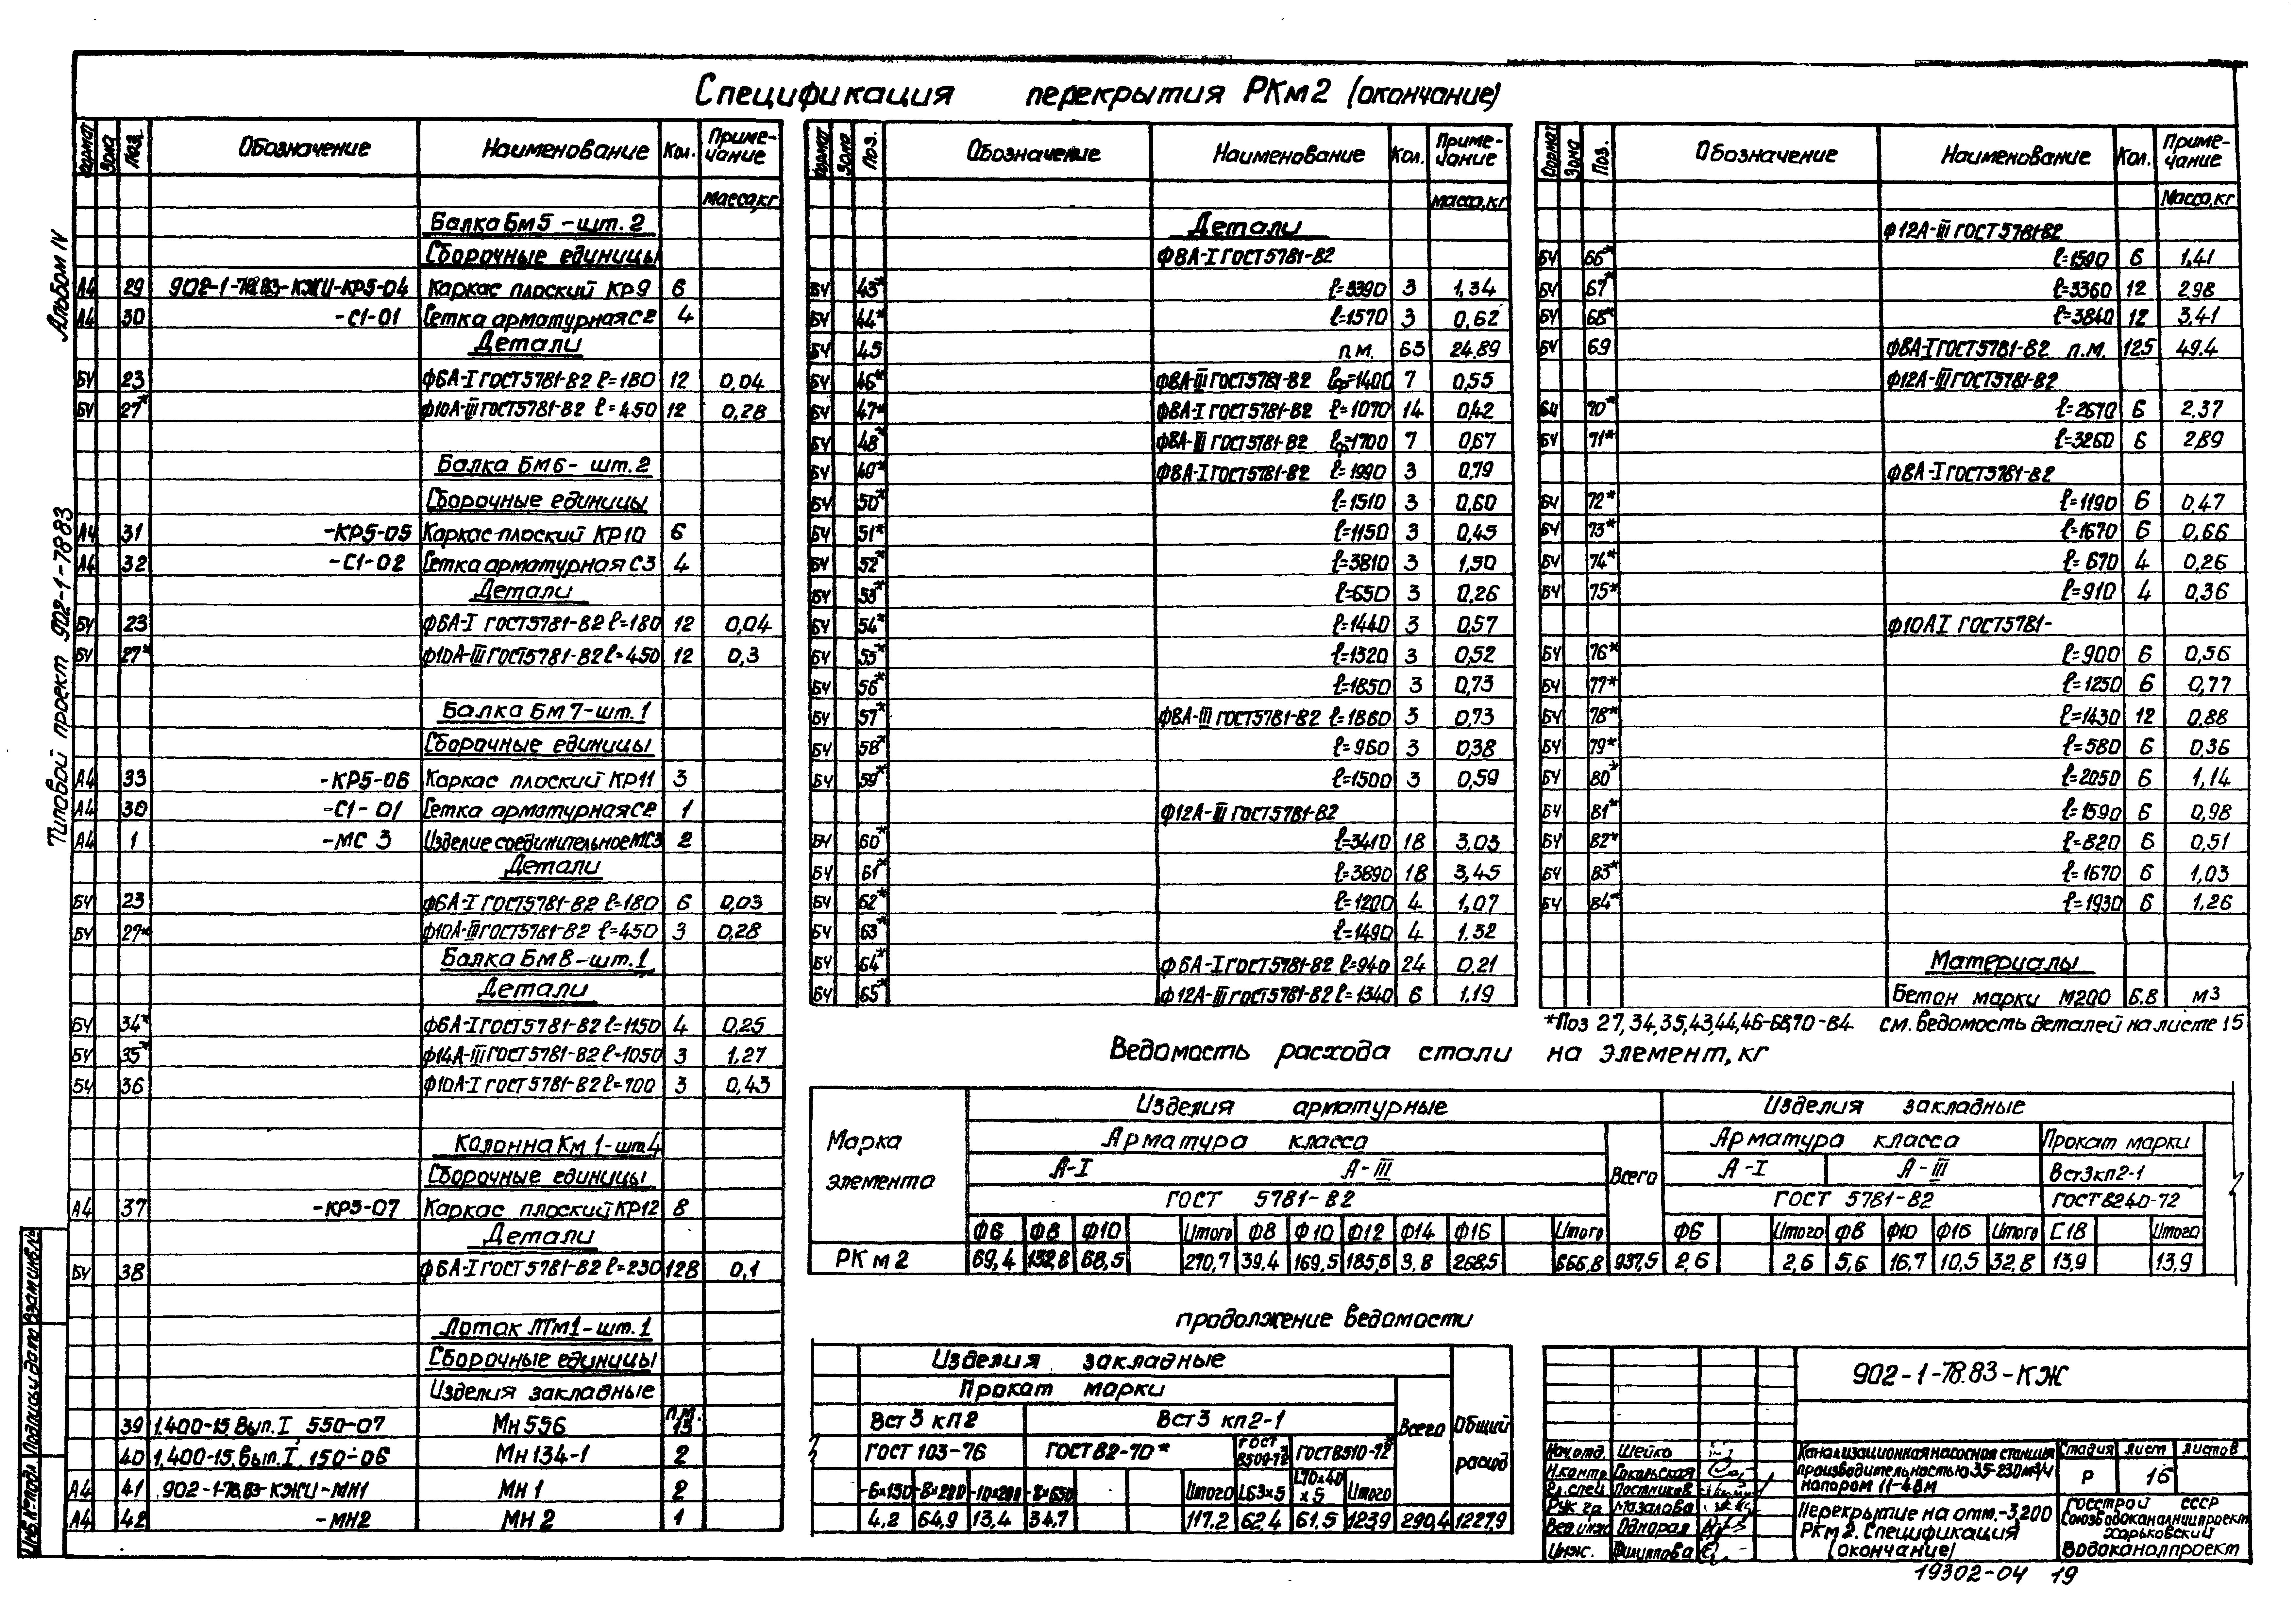 Спецификация перекрытия РКм2 (окончание)
Альбом IV
Типовой проект 902-1-78.83
Формат Зона Поз. Обозначение Наименование Кол. Примечание
масса, кг
Балка Бм5 - шт. 2
Сборочные единицы
А4 29 902-1-78.83-КЖИ-КР5-04 Каркас плоский КР9 6
А4 30 -С1-01 Сетка арматурная С2 4
Детали
БЧ 23 Ф6А-I ГОСТ5781-82 ℓ=180 12 0,04
БЧ 27* Ф10А-III ГОСТ5781-82 ℓ=450 12 0,28
Балка Бм6 - шт. 2
Сборочные единицы
А4 31 -КР5-05 Каркас плоский КР10 6
А4 32 -С1-02 Сетка арматурная С3 4
Детали
БЧ 23 Ф6А-I ГОСТ5781-82 ℓ=180 12 0,04
БЧ 27* Ф10А-III ГОСТ5781-82 ℓ=450 12 0,3
Балка Бм7 - шт. 1
Сборочные единицы
А4 33 -КР5-06 Каркас плоский КР11 3
А4 30 -С1-01 Сетка арматурная С2 1
А4 1 -МС 3 Изделие соединительное МС3 2
Детали
БЧ 23 Ф6А-I ГОСТ5781-82 ℓ=180 6 0,03
БЧ 27* Ф10А-III ГОСТ5781-82 ℓ=450 3 0,28
Балка Бм8 - шт. 1
Детали
БЧ 34* Ф6А-I ГОСТ5781-82 ℓ=1150 4 0,25
БЧ 35* Ф14А-III ГОСТ5781-82 ℓ=1050 3 1,27
БЧ 36 Ф10А-I ГОСТ5781-82 ℓ=700 3 0,43
Колонна Км 1 - шт. 4
Сборочные единицы
А4 37 -КР5-07 Каркас плоский КР12 8
Детали
БЧ 38 Ф6А-I ГОСТ5781-82 ℓ=230 128 0,1
Лоток ЛТм1 - шт. 1
Сборочные единицы
Изделия закладные
39 1.400-15 Вып. I, 550-07 Мн 556 п.м. 13
40 1.400-15. Вып. I, 150-06 Мн 134-1 2
А4 41 902-1-78.83-КЖИ-МН1 МН 1 2
А4 42 -МН2 МН 2 1
Формат Зона Поз. Обозначение Наименование Кол. Примечание
масса, кг
Детали
Ф8А-I ГОСТ5781-82
БЧ 43* ℓ=3390 3 1,34
БЧ 44* ℓ=1570 3 0,62
БЧ 45 п.м. 63 24.89
БЧ 46* Ф8А-III ГОСТ5781-82 ℓср=1400 7 0,55
БЧ 47* Ф8А-I ГОСТ5781-82 ℓ=1070 14 0,42
БЧ 48* Ф8А-III ГОСТ5781-82 ℓср=1700 7 0,67
БЧ 49* Ф8А-I ГОСТ5781-82 ℓ=1990 3 0,79
БЧ 50* ℓ=1510 3 0,60
БЧ 51* ℓ=1150 3 0,45
БЧ 52* ℓ=3810 3 1,50
БЧ 53* ℓ=650 3 0,26
БЧ 54* ℓ=1440 3 0,57
БЧ 55* ℓ=1320 3 0,52
БЧ 56* ℓ=1850 3 0,73
БЧ 57* Ф8А-III ГОСТ5781-82 ℓ=1860 3 0,73
БЧ 58* ℓ=960 3 0,38
БЧ 59* ℓ=1500 3 0,59
Ф12А-III ГОСТ5781-82
БЧ 60* ℓ=3410 18 3,03
БЧ 61* ℓ=3890 18 3,45
БЧ 62* ℓ=1200 4 1,07
БЧ 63* ℓ=1490 4 1.32
БЧ 64* Ф6А-I ГОСТ5781-82 ℓ=940 24 0,21
БЧ 65* Ф12А-III ГОСТ5781-82 ℓ=1340 6 1,19
Формат Зона Поз. Обозначение Наименование Кол. Примечание
Масса, кг
Ф12А-III ГОСТ5781-82
БЧ 66* ℓ=1590 6 1,41
БЧ 67* ℓ=3360 12 2.98
БЧ 68* ℓ=3840 12 3,41
БЧ 69 Ф8А-I ГОСТ5781-82 п.м. 125 49.4
Ф12А-III ГОСТ5781-82
БЧ 70* ℓ=2670 6 2.37
БЧ 71* ℓ=3260 6 2,89
Ф8А-I ГОСТ5781-82
БЧ 72* ℓ=1190 6 0,47
БЧ 73* ℓ=1670 6 0,66
БЧ 74* ℓ=670 4 0,26
БЧ 75* ℓ=910 4 0,36
Ф10АI ГОСТ5781-
БЧ 76* ℓ=900 6 0,56
БЧ 77* ℓ=1250 6 0,77
БЧ 78* ℓ=1430 12 0,88
БЧ 79* ℓ=580 6 0,36
БЧ 80* ℓ=2050 6 1,14
БЧ 81* ℓ=1590 6 0,98
БЧ 82* ℓ=820 6 0,51
БЧ 83* ℓ=1670 6 1,03
БЧ 84* ℓ=1930 6 1,26
Материалы
Бетон марки М200 6.8 м3
*Поз 27,34,35,43,44,46-68,70-84 см. ведомость деталей на листе 15
Ведомость расхода стали на элемент, кг
Марка элемента Изделия арматурные Изделия закладные
Арматура класса Всего Арматура класса Прокат марки
А-I А-III А-I А-III Вст3кп2-1
ГОСТ 5781-82 ГОСТ 5781-82 ГОСТ8240-72
Ф6 Ф8 Ф10 Итого Ф8 Ф10 Ф12 Ф14 Ф16 Итого Ф6 Итого Ф8 Ф10 Ф16 Итого С18 Итого
РКм2 69,4 132,8 68,5 270,7 39.4 169,5 185,6 3,8 268,5 666,8 937,5 2,6 2,6 5,6 16.7 10,5 32,8 13,9 13,9
продолжение ведомости
Изделия закладные Общий расход
Прокат марки Всего
Вст3 кп2 Вст3 кп2-1
ГОСТ 103-76 ГОСТ 82-70* ГОСТ 8509-72 ГОСТ8510-72*
-6×150 -8×200 -10×200 -8×650 Итого L63×5 L70×40×5 Итого
4,2 64,9 13,4 34,7 117.2 62.4 61.5 123,9 290,4 1227,9
902-1-78.83-КЖ
Нач.отд. Шейко
Н.контр. Сокольская
Гл.спец. Постников
Рук гр. Мазалова
Вед.инж Однорал
Инж. Филиппова
Канализационная насосная станция производительностью 35-230м³/ч напором 11-48м
Стадия Лист Листов
Р 16
Перекрытие на отм.-3,200 РКм 2. Спецификация (окончание)
Госстрой СССР
Союзводоканалниипроект
Харьковский
Водоканалпроект
Инв.№ подл. Подпись и дата Взам.инв.№
19302-04 19